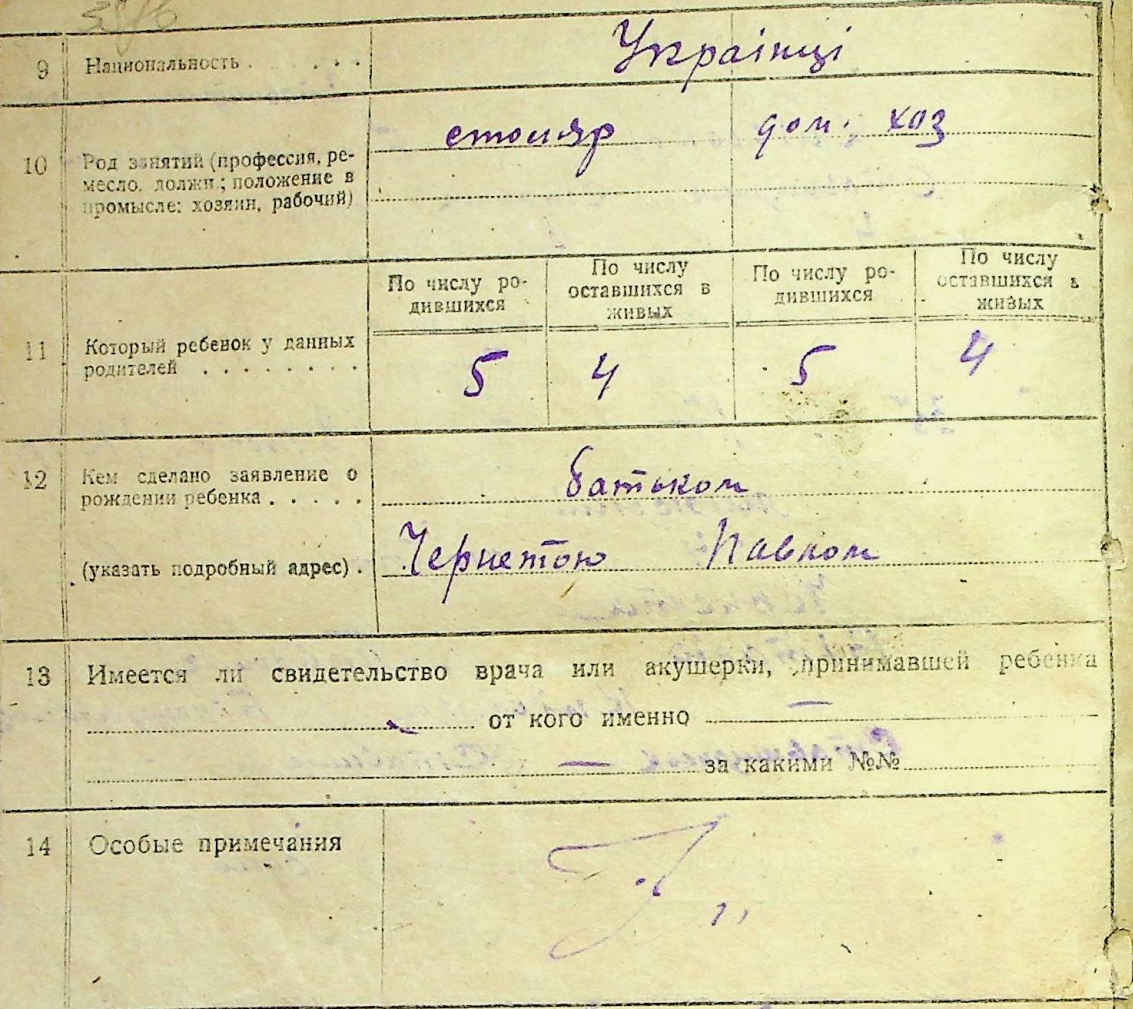 9 Национальность . . . . Українці
10 Род занятий (профессия, ре-
месло, должн.; положение в
промысле: хозяин, рабочий)
столяр дом. хоз
По числу ро-
дившихся
По числу
оставшихся в
живых
По числу ро-
дившихся
По числу
оставшихся в
живых
11 Который ребенок у данных
родителей . . . . . . . .
5 4 5 4
12 Кем сделано заявление о
рождении ребенка . . . . .
батьком
(указать подробный адрес) . Чернетою Павлом
13 Имеется ли свидетельство врача или акушерки, принимавшей ребенка
от кого именно —
— за какими №№
14 Особые примечания